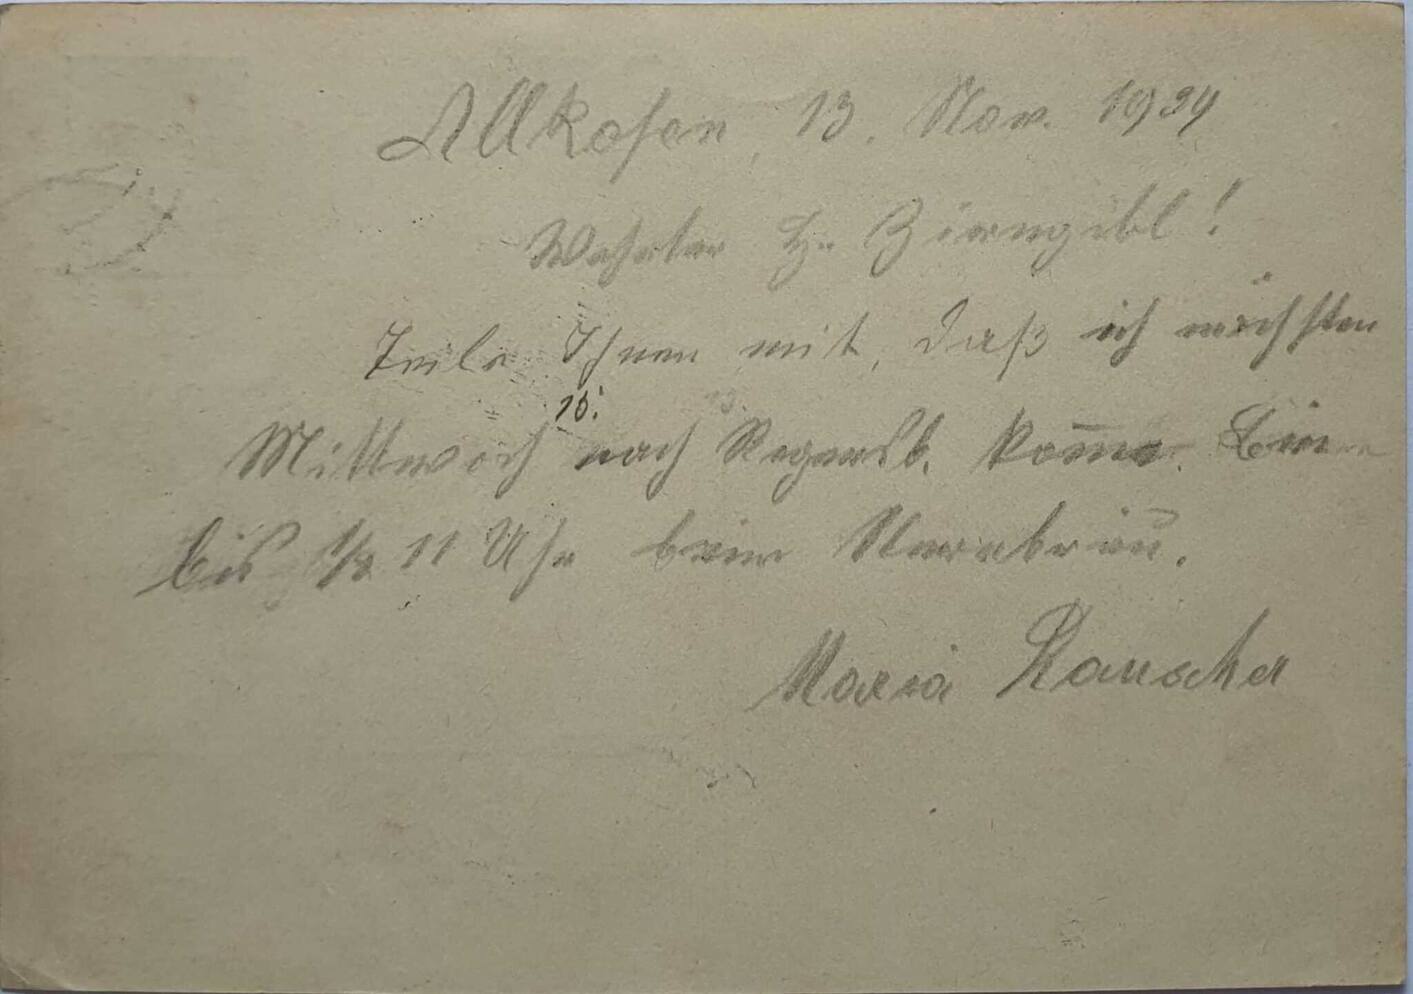 Allkofen, 13. Nov. 1939
Wehrter Hr. Zirngibl!
Teile Ihnen mit, daß ich nächsten
15.
Mittwoch nach Regensb. kom̄e. Bin
bis 1/2 11 Uhr beim
Maria Rauscher